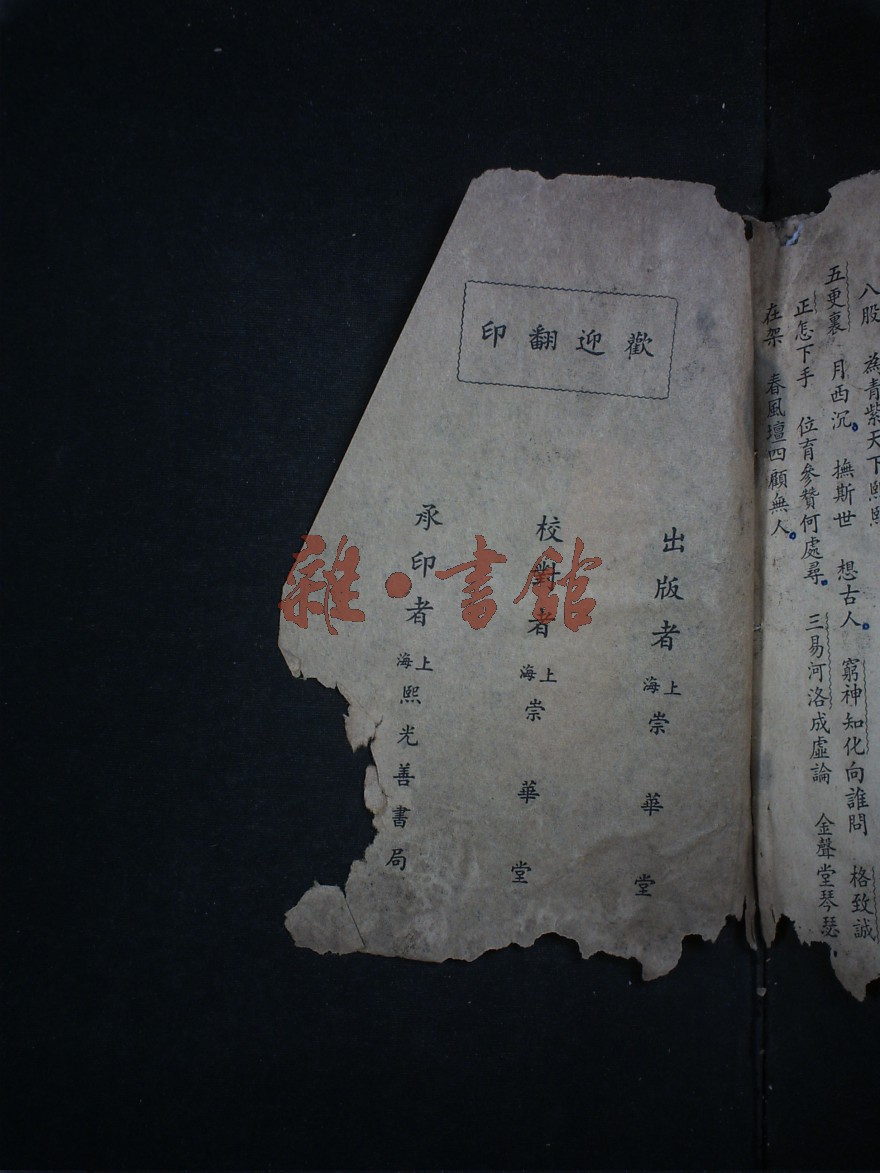 八股　為青紫天下熙熙
五更裏　月西沉　撫斯世　想古人　窮神知化向誰問　格致誠
正怎下手　位育參贊何處尋　三易河洛成虛論　金聲堂琴瑟
在架　春風壇四顧無人
歡迎翻印
出版者 上海崇華堂
校對者 上海崇華堂
承印者 上海熙光善書局
雜·書館